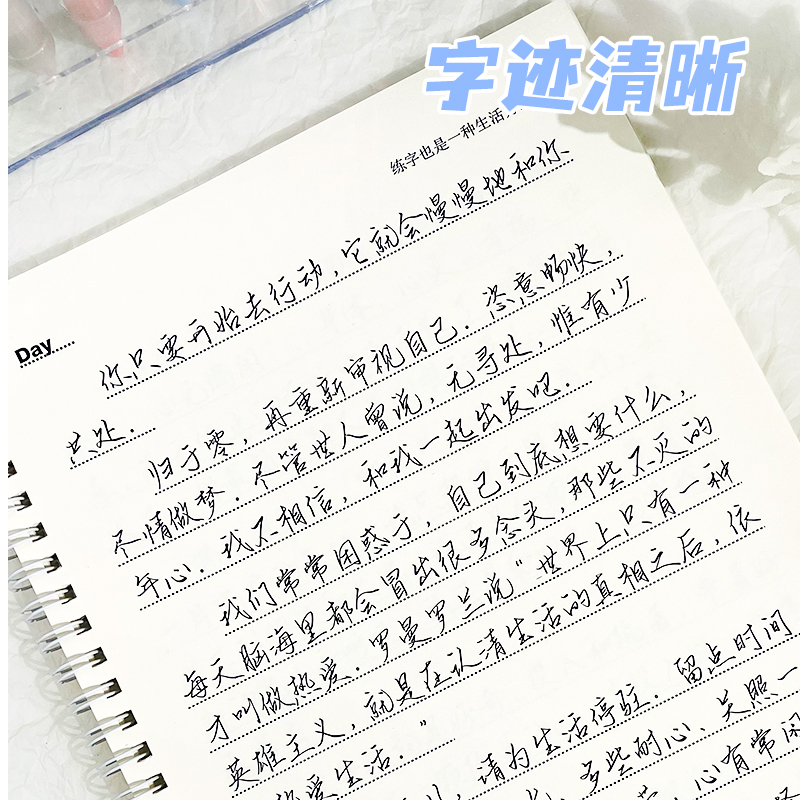 字迹清晰
练字也是一种生活
Day
你只要开始去行动，它就会慢慢地和你
共处．
归于零，再重新审视自己．恣意畅快，
尽情做梦．尽管世人曾说，无寻处，惟有少
年心．我不相信，和我一起出发吧．
我们常常困惑于，自己到底想要什么，
每天脑海里都会冒出很多念头，那些不灭的
才叫做热爱．罗曼罗兰说“世界上只有一种
英雄主义，就是在认清生活的真相之后，依
热爱生活．”
请为生活停驻．留点时间
多些耐心、关照一
心有常闲